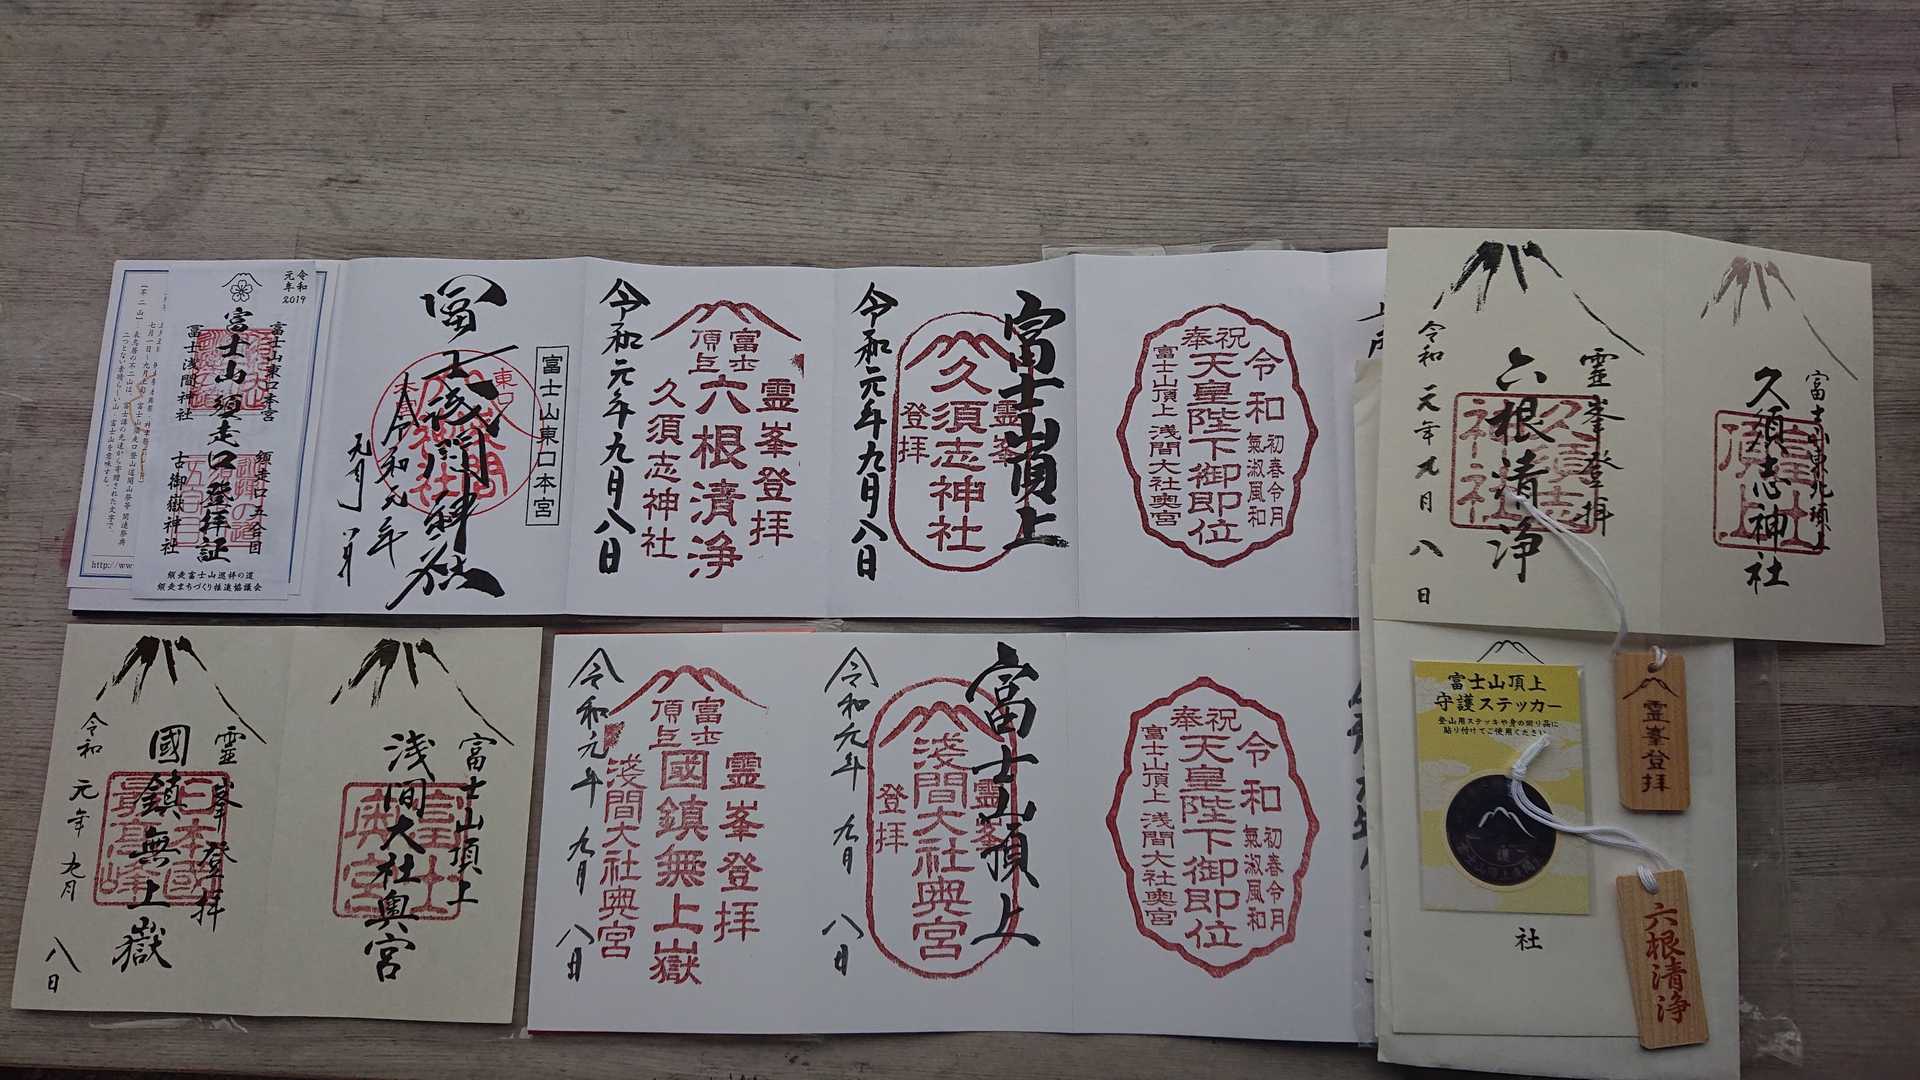 令和
元年
2019
富士山東口本宮
富士浅間神社
富士山須走口登拝証
須走口五合目
古御嶽神社
須走富士山巡拝の道
須走まちづくり推進協議会
http://ww
富士山東口本宮
冨士浅間神社
令和元年
九月八日
霊峯登拝
富士頂上
六根清浄
久須志神社
令和元年九月八日
富士山頂上
霊峯
久須志神社
登拝
令和元年九月八日
令和
初春令月
氣淑風和
奉祝
天皇陛下御即位
富士山頂上浅間大社奥宮
霊峯登拝
六根清浄
令和元年九月八日
久須志神社
霊峯登拝
國鎮無上嶽
日本國
最高峰
令和元年九月八日
富士山頂上
浅間大社奥宮
霊峯登拝
富士頂上
國鎮無上嶽
淺間大社奥宮
令和元年九月八日
富士山頂上
霊峯
淺間大社奥宮
登拝
令和元年九月八日
令和
初春令月
氣淑風和
奉祝
天皇陛下御即位
富士山頂上浅間大社奥宮
富士山頂上
守護ステッカー
登山用ステッキや身の廻り品に
貼り付けてご使用ください
護
社
霊峯登拝
六根清浄